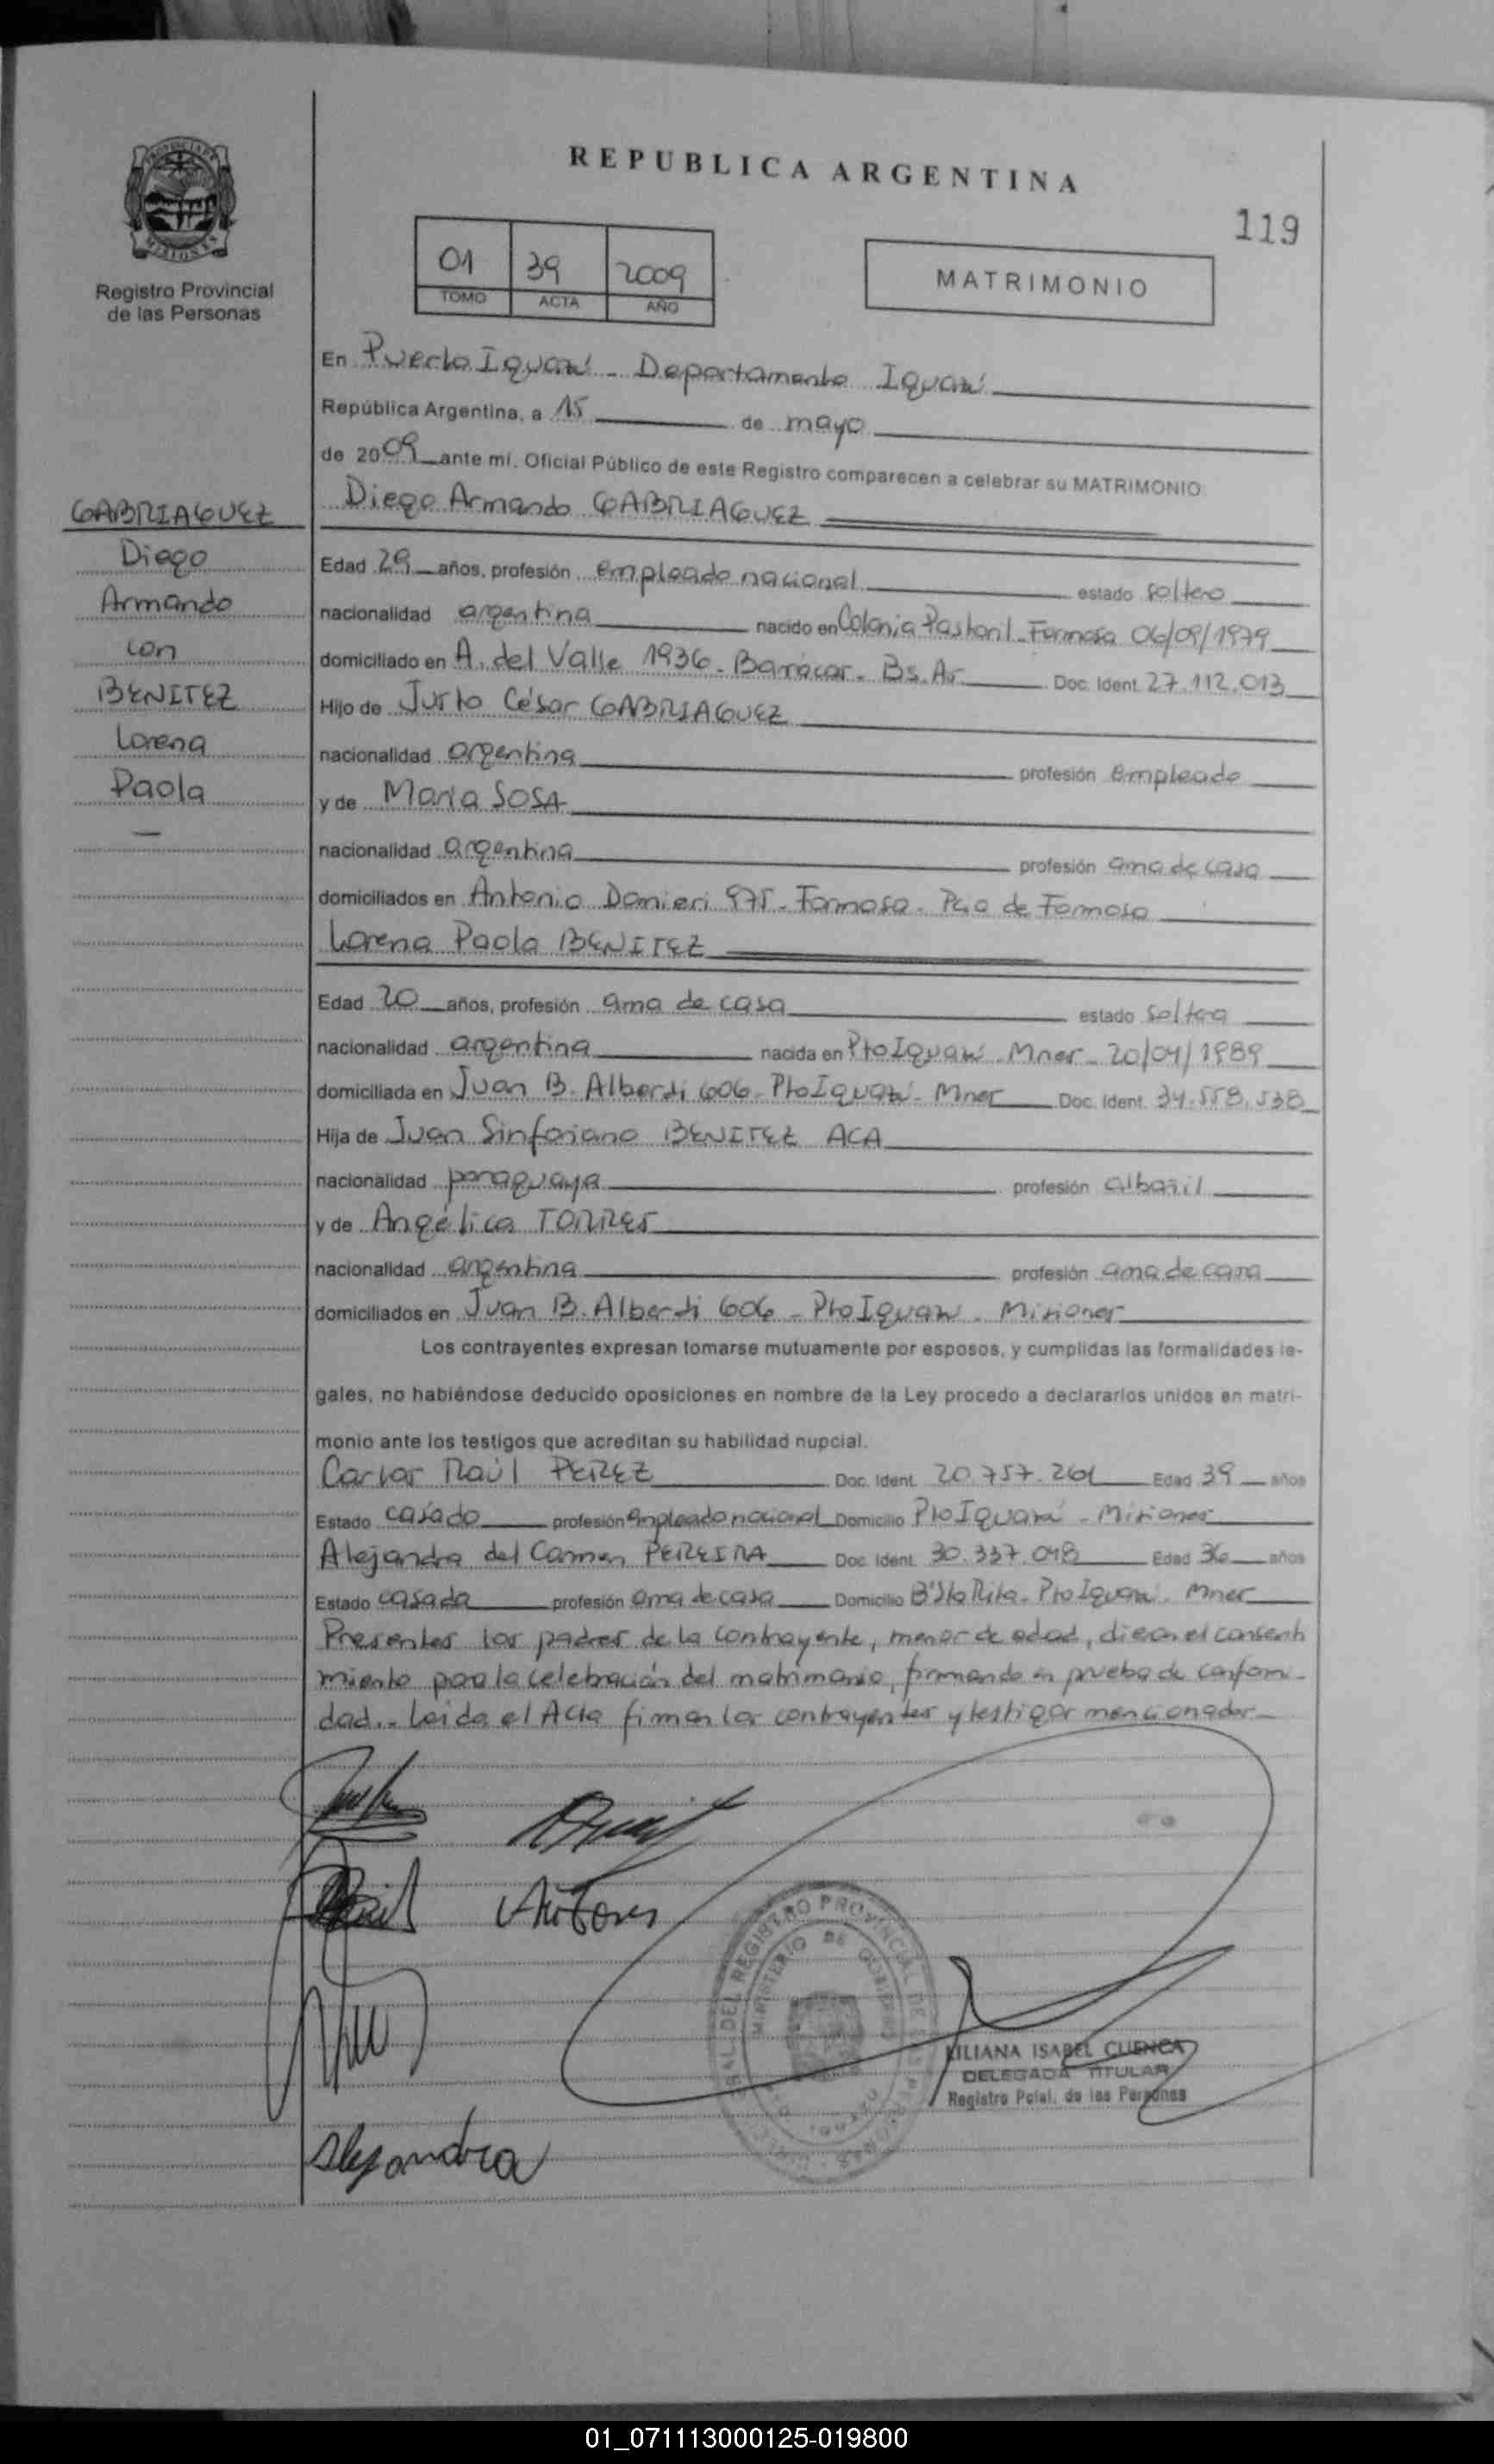 REPUBLICA ARGENTINA
119
Registro Provincial
de las Personas
01 39 2009
TOMO ACTA AÑO
MATRIMONIO
En Puerto Iguazú - Departamento Iguazú
República Argentina, a 15 de mayo
de 2009 ante mí, Oficial Público de este Registro comparecen a celebrar su MATRIMONIO
GABRIAGUEZ
Diego
Armando
con
BENITEZ
Lorena
Paola
Diego Armando GABRIAGUEZ
Edad 29 años, profesión empleado nacional estado soltero
nacionalidad argentina nacido en Colonia Pastoril - Formosa 06/09/1979
domiciliado en A. del Valle 1936 - Barracas - Bs. As. Doc. Ident. 27.112.013
Hijo de Justo César GABRIAGUEZ
nacionalidad argentina profesión empleado
y de María SOSA
nacionalidad argentina profesión ama de casa
domiciliados en Antonio Danieri 975 - Formosa - Pcia de Formosa
Lorena Paola BENITEZ
Edad 20 años, profesión ama de casa estado soltera
nacionalidad argentina nacida en Pto Iguazú - Mnes - 20/04/1989
domiciliada en Juan B. Alberdi 606 - Pto Iguazú - Mnes Doc. Ident. 34.558.538
Hija de Juan Sinforiano BENITEZ ACA
nacionalidad paraguaya profesión albañil
y de Angélica TORRES
nacionalidad argentina profesión ama de casa
domiciliados en Juan B. Alberdi 606 - Pto Iguazú - Misiones
Los contrayentes expresan tomarse mutuamente por esposos, y cumplidas las formalidades le-
gales, no habiéndose deducido oposiciones en nombre de la Ley procedo a declararlos unidos en matri-
monio ante los testigos que acreditan su habilidad nupcial.
Carlos Raúl PEREZ Doc. Ident. 20.757.261 Edad 39 años
Estado casado profesión empleado nacional Domicilio Pto Iguazú - Misiones
Alejandra del Carmen PEREIRA Doc. Ident. 30.337.048 Edad 36 años
Estado casada profesión ama de casa Domicilio Bº Sta Rita - Pto Iguazú - Mnes
Presentes los padres de la contrayente, menor de edad, dieron el consenti
miento para la celebración del matrimonio, firmando en prueba de conformi-
dad.- Leida el Acta firman los contrayentes y testigos mencionados -
ATorres
LILIANA ISABEL CUENCA
DELEGADA TITULAR
Registro Pcial. de las Personas
Alejandra
01_071113000125-019800